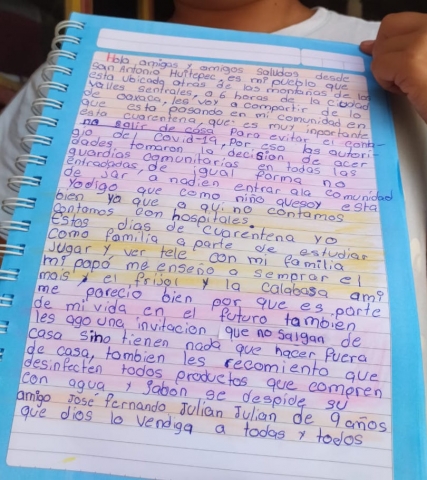 Hola amigas y amigos saludos desde
San Antonio Huitepec, es mi pueblo que
esta ubicada atras de las montañas de los
valles sentrales, a 6 horas de la ciudad
de oaxaca, les voy a compartir de lo
que esta pasando en mi comunidad en
esta cuarentena, que es muy inportante
no salir de casa para evitar el conta-
gio del covid-19, Por eso las autori-
dades tomaron la decision de acer
guardias comunitarias en todas las
entradas, de igual forma no
de jar a nadien entrar ala comunidad
Yodigo que como niño quesoy esta
bien ya que a qui no contamos
contamos con hospitales.
Estos dias de cuarentena yo
como familia a parte de estudiar
Jugar y ver tele con mi familia
mi papá me enseño a semprar el
mais y el frijol y la calabasa ami
me parecio bien por que es parte
de mi vida en el futuro tambien
les ago una invitacion que no salgan de
casa sino tienen nada que hacer fuera
de casa, tambien les recomiento que
desinfecten todos productos que compren
con agua y jabon se despide su
amigo José Fernando Julian Julian de 9 años
que dios lo vendiga a todas y todos